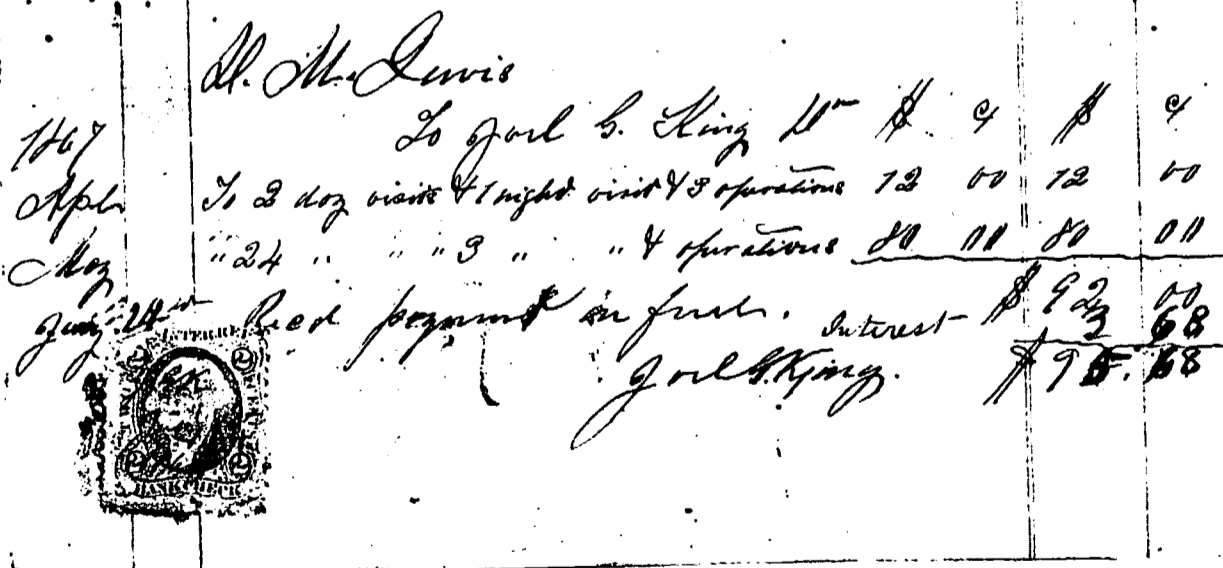 D. M. Lewis
To Joel G. King Dr $ c $ c
1867
Apl To 2 day visits & 1 night visit & 3 operations 12 00 12 00
May " 24 " " " 3 " " & operations 80 00 80 00
24th Recd payment in full. $ 92 00
Interest 3 68
Joel G. King. $ 95.68
INTER. REV.
2 2
2 2
BANK CHECK